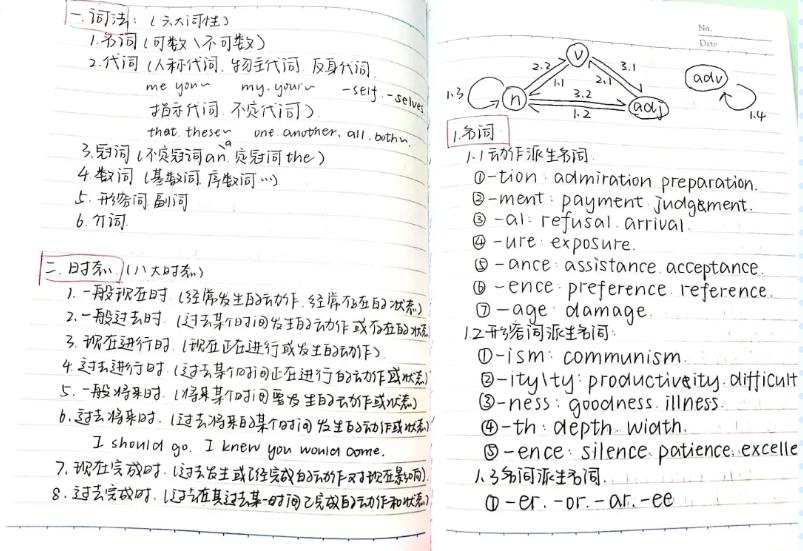 一.词法:(六大词性)
1.名词(可数\不可数)
2.代词(人称代词.物主代词.反身代词.
me you~ my.your~ -self.-selves
指示代词.不定代词)
that.these~ one.another.all.both~
3.冠词(不定冠词an\a.定冠词the)
4.数词(基数词.序数词…)
5.形容词.副词
6.介词.
二.时态.(八大时态)
1.一般现在时.(经常发生的动作.经常存在的状态)
2.一般过去时.(过去某个时间发生的动作或存在的状态
3.现在进行时.(现在正在进行或发生的动作)
4.过去进行时.(过去某个时间正在进行的动作或状态)
5.一般将来时.(将来某个时间要发生的动作或状态)
6.过去将来时.(过去将来的某个时间发生的动作或状态)
I should go. I knew you would come.
7.现在完成时.(过去发生或已经完成的动作对现在影响)
8.过去完成时.(过去在其过去某一时间已完成的动作和状态)
No.
Date
v
2.2 1.1 2.1 3.1
adv
1.3 n 3.2 1.2 adj
1.4
1.名词
1.1动作派生名词:
①-tion: admiration.preparation.
②-ment: payment.judgement.
③-al: refusal.arrival.
④-ure: exposure.
⑤-ance: assistance.acceptance.
⑥-ence: preference.reference.
⑦-age: damage.
1.2形容词派生名词:
①-ism: communism.
②-ity\ty: productivity.difficult
③-ness: goodness.illness.
④-th: depth.width.
⑤-ence: silence.patience.excelle
1.3名词派生名词.
①-er.-or.-ar.-ee